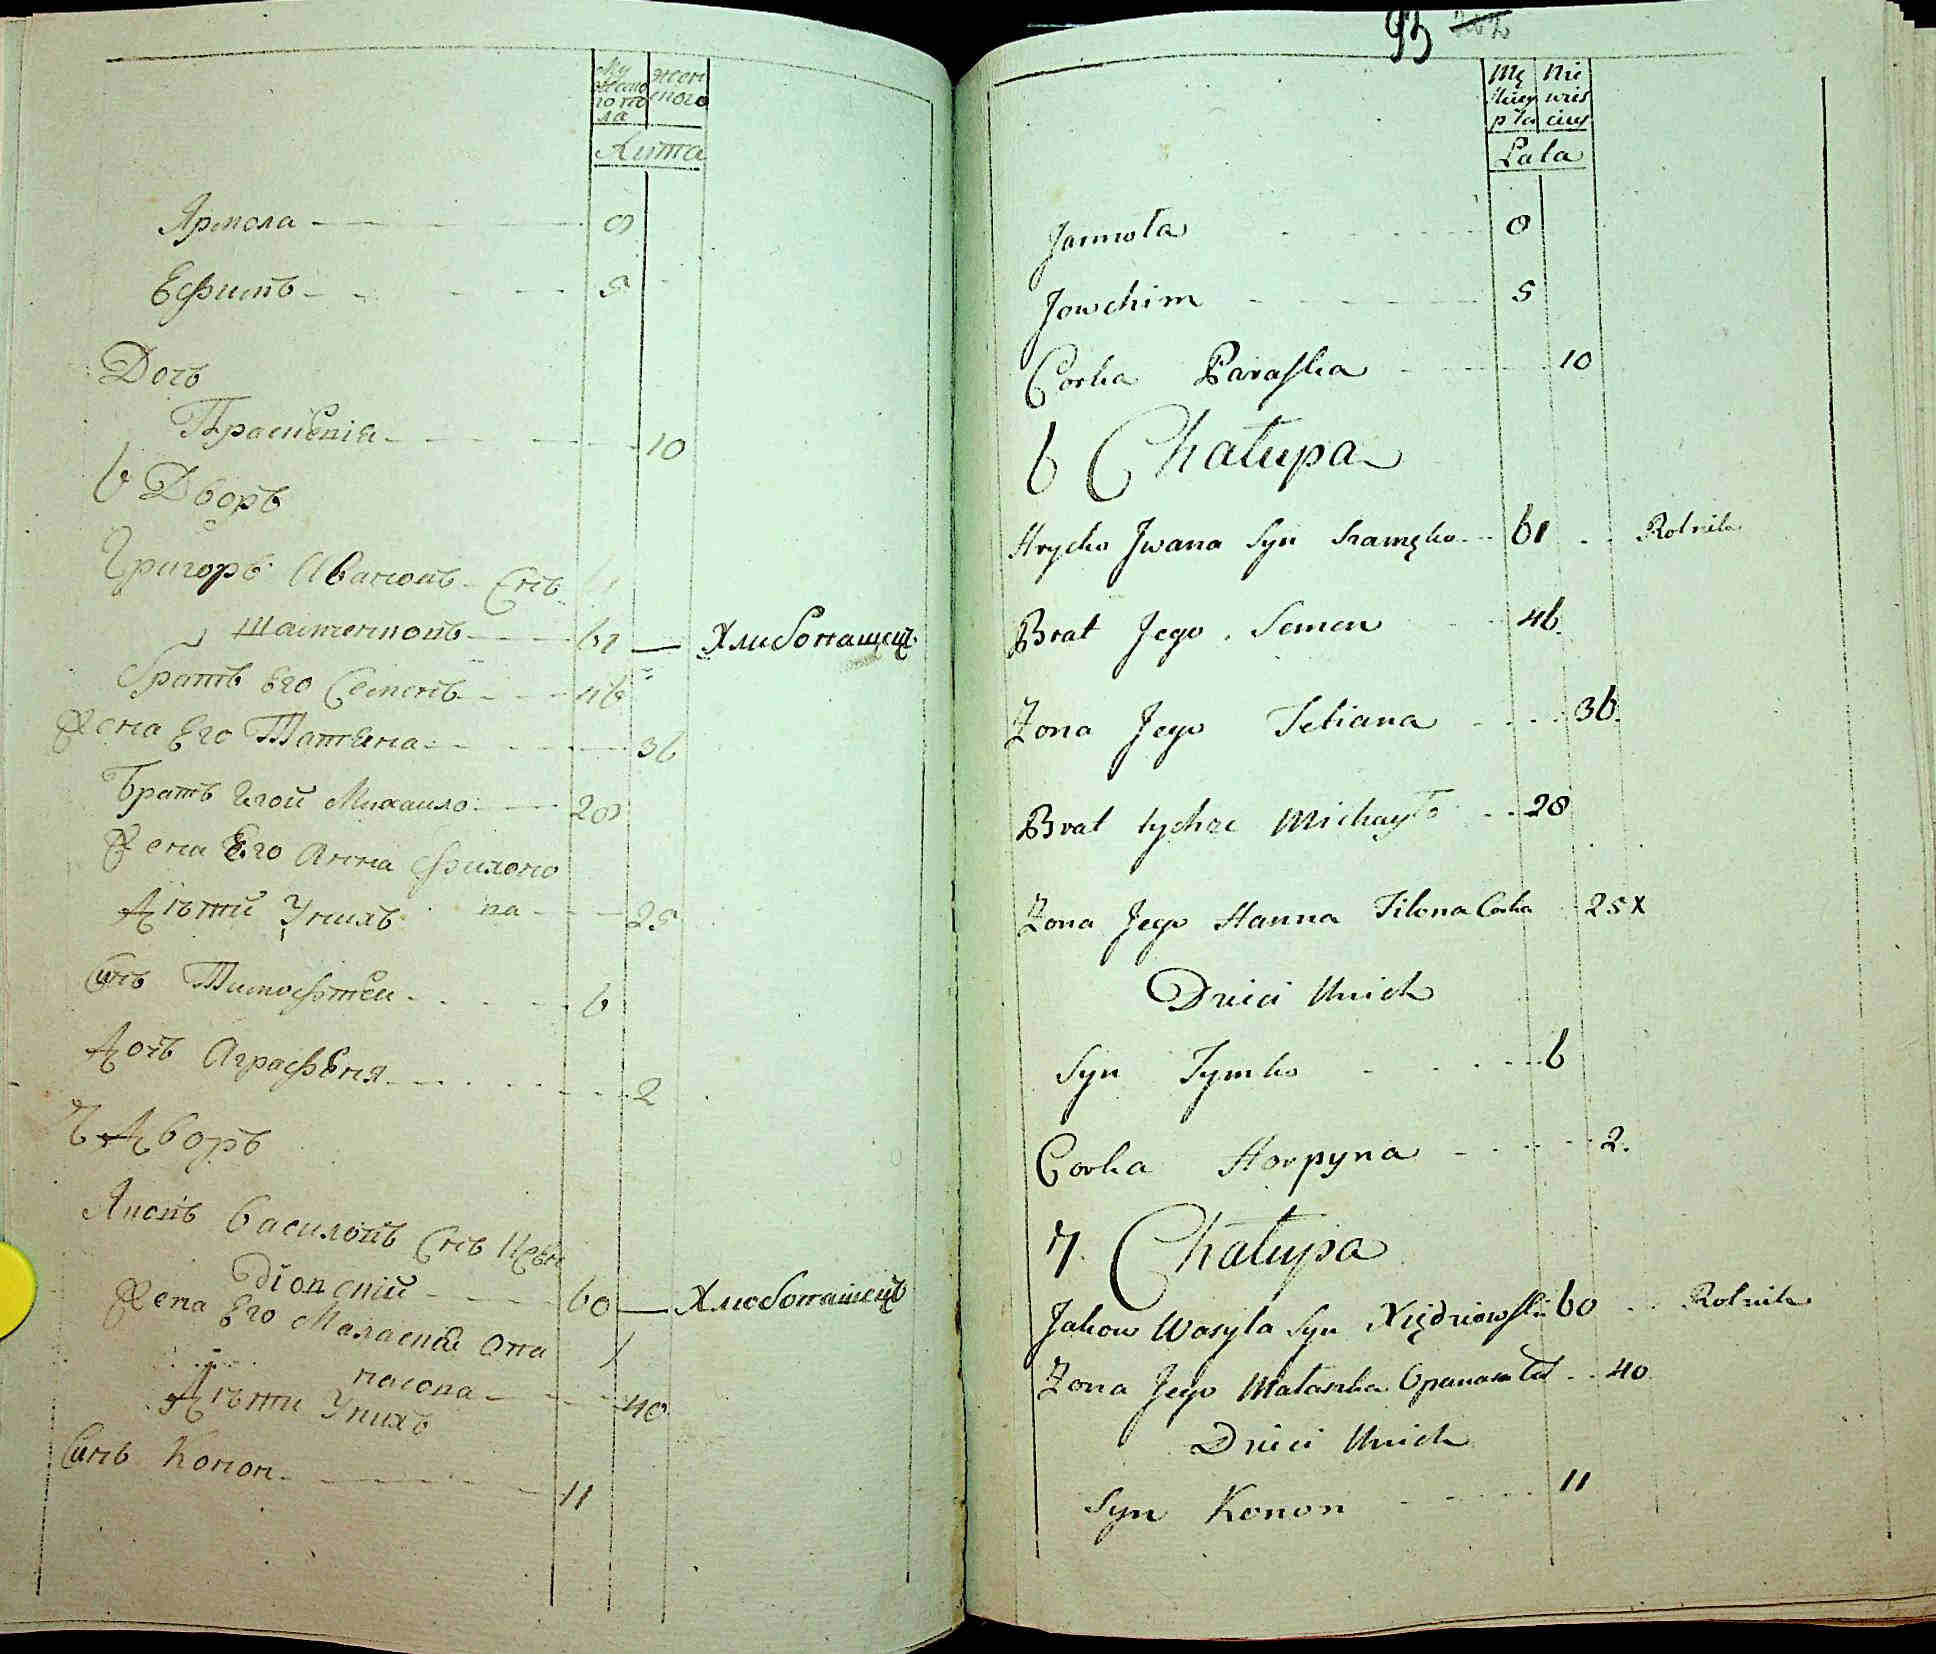 Му
жеско
го по
ла
жен
ского
Лѣта
Ярмола 8
Ефимъ 5
Дочь
Параскевія 10
6 Дворъ
Григоръ Ивановъ Снъ
61 Хлибопашецъ
братъ Его Семенъ 46
Жена Его Татіяна 36
братъ Михаило 28
Жена Его Анна Филоно
ва 25
Дѣти У нихъ
Синъ Тимофѣй 6
Дочь Аграфѣня 2
7 Дворъ
Яковъ Василовъ Снъ
60 Хлибопашецъ
Жена Его Маласка Опа
насова 40
Дѣти У нихъ
Синъ Конон 11
93 202
Mę
skiey
płci
Nie
wies
ciey
Lata
Jarmoła 8
Jowchim 5
Corka Paraska 10
6 Chałupa
Hrycko Jwana Syn 61 Rolnik
Brat Jego Semen 46
Zona Jego Tetiana 36.
Brat tychze Michayło 28
Zona Jego Hanna Filona Corka 25 x
Dzieci Unich
Syn Tymko 6
Corka Horpyna 2.
7. Chałupa
Jakow Wasyla Syn Xiędzowski 60 Rolnik
Zona Jego Małaszka Opanasa Cor 40
Dzieci Unich
Syn Konon 11